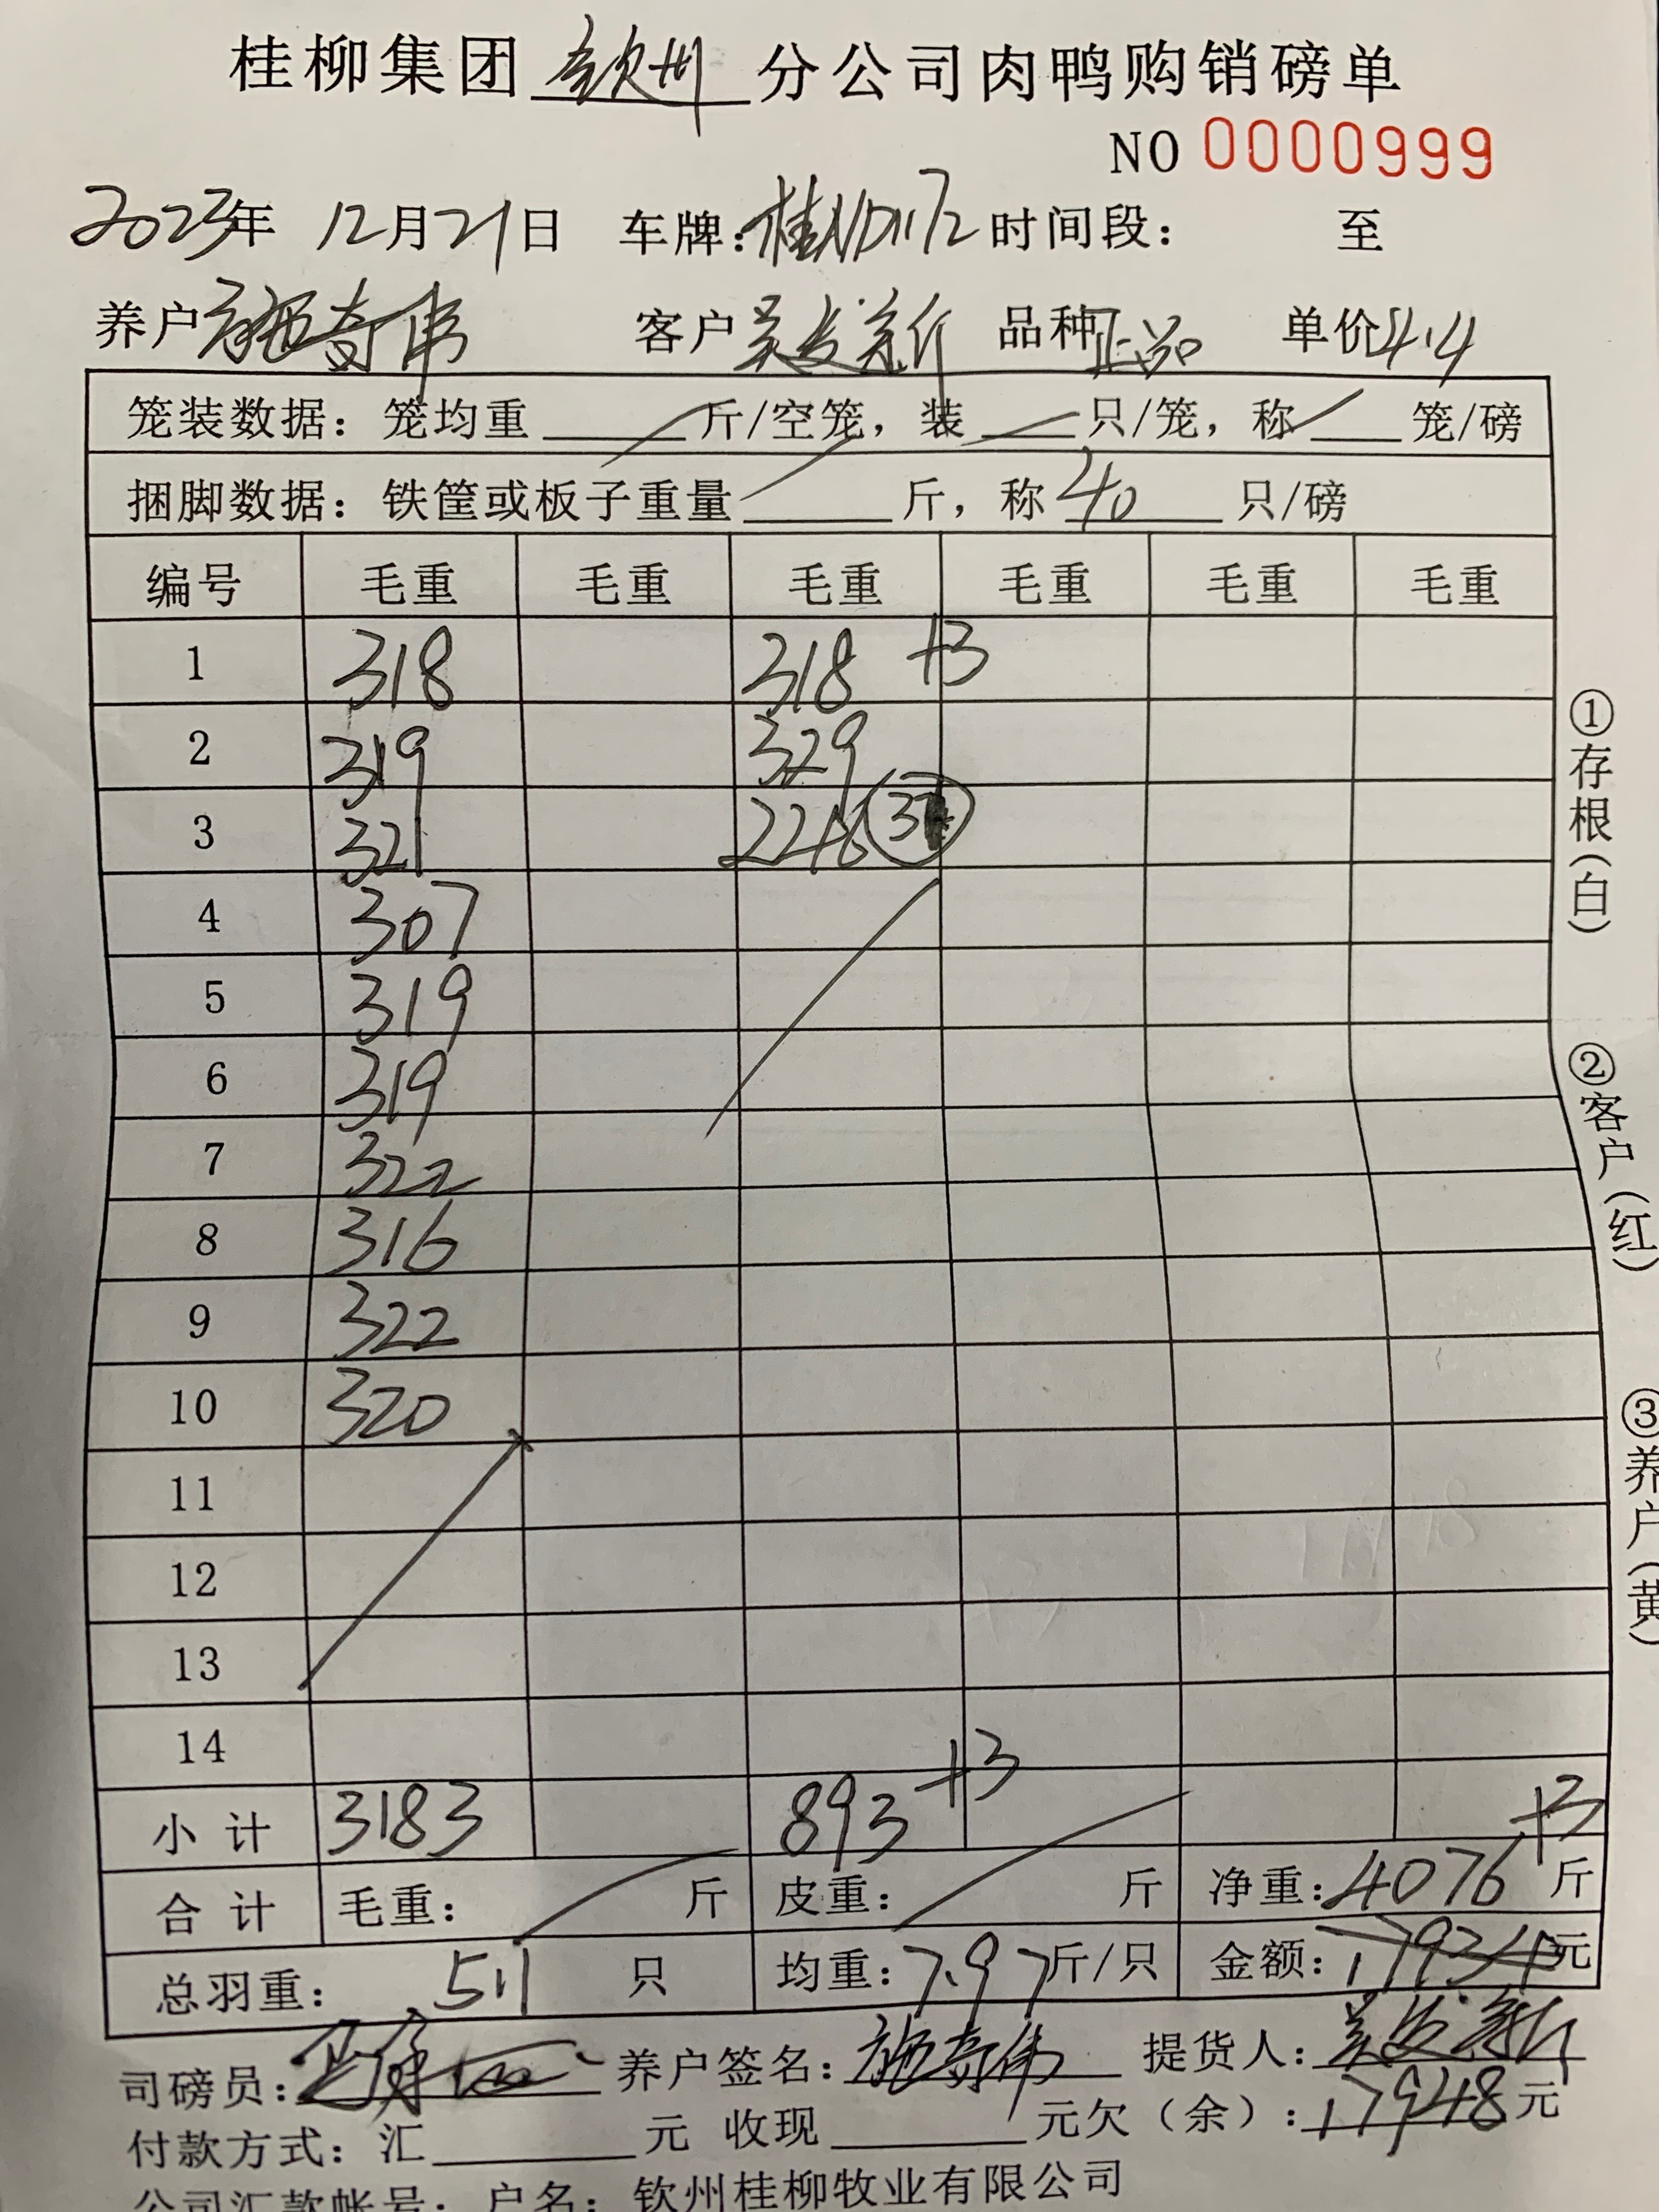 桂柳集团 钦州 分公司肉鸭购销磅单
NO 0000999
2023年 12月21日 车牌:桂ND1172 时间段: 至
养户 施奇伟 客户 吴发新 品种 正品 单价 4.4
笼装数据: 笼均重 斤/空笼, 装 只/笼, 称 笼/磅
捆脚数据: 铁筐或板子重量 斤, 称 40 只/磅
编号 毛重 毛重 毛重 毛重 毛重 毛重
1 318 318 +3
2 319 329
3 321 246
4 307
5 319
6 319
7 322
8 316
9 322
10 320
11
12
13
14
小计 3183 893 +3 +3
合计 毛重: 斤 皮重: 斤 净重:4076 斤
总羽重: 511 只 均重:7.97斤/只 金额:17934元
司磅员: 养户签名:施奇伟 提货人:吴发新
付款方式: 汇 元 收现 元欠(余):17948元
公司汇款帐号: 户名: 钦州桂柳牧业有限公司
①存根(白)
②客户(红)
③养户(黄)